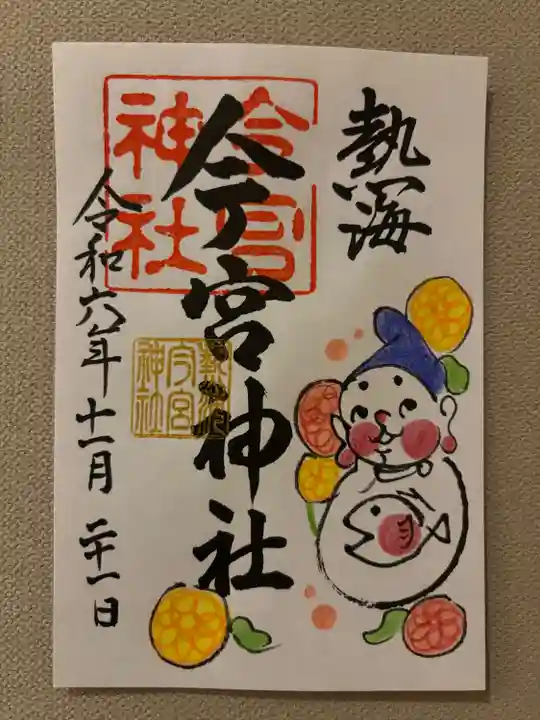 熱海
今宮神社
今宮神社
熱海今宮神社
令和六年十一月二十一日